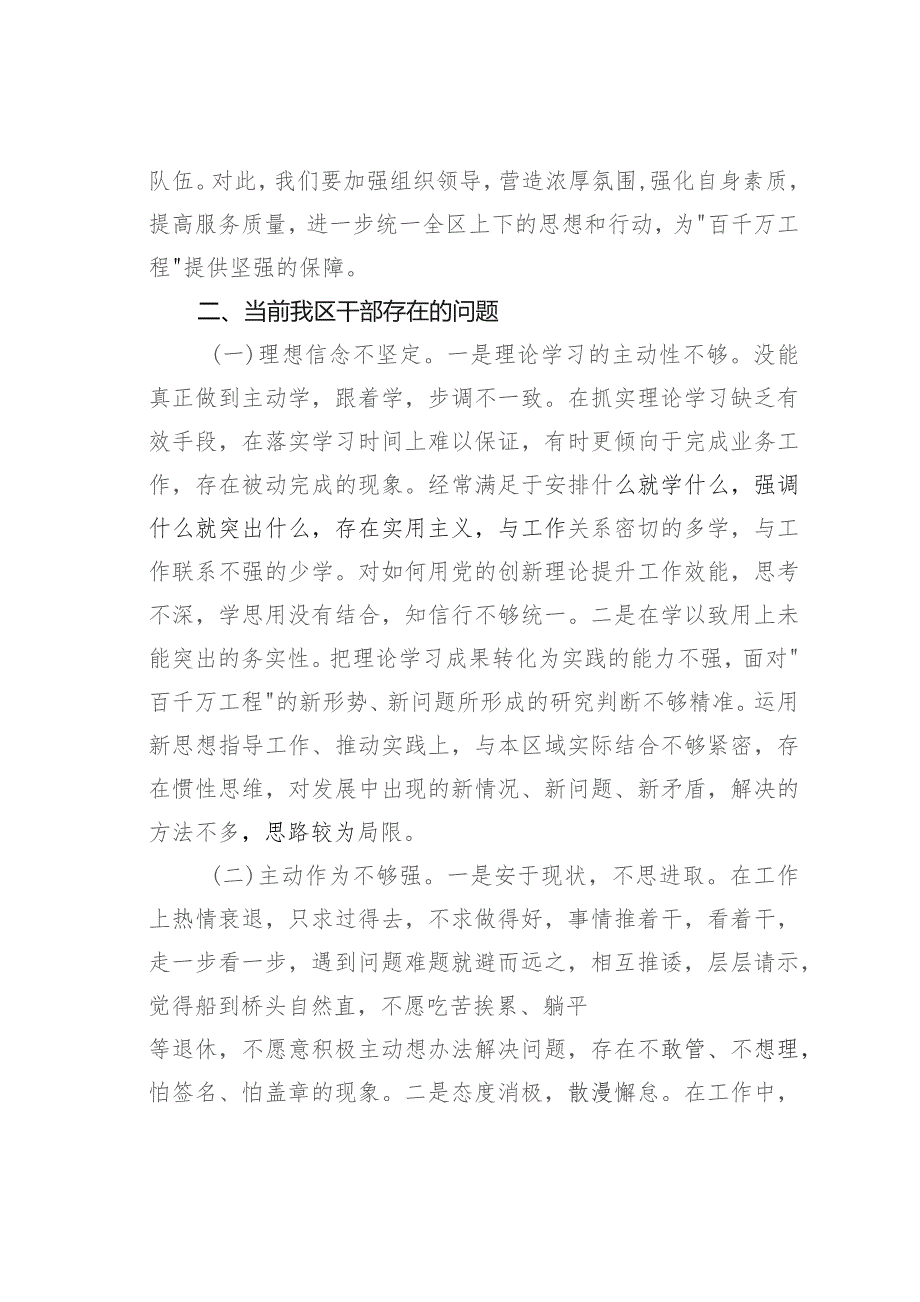 队伍。对此，我们要加强组织领导，营造浓厚氛围，强化自身素质，
提高服务质量，进一步统一全区上下的思想和行动，为"百千万工
程"提供坚强的保障。
二、当前我区干部存在的问题
(一)理想信念不坚定。一是理论学习的主动性不够。没能
真正做到主动学，跟着学，步调不一致。在抓实理论学习缺乏有
效手段，在落实学习时间上难以保证，有时更倾向于完成业务工
作，存在被动完成的现象。经常满足于安排什么就学什么，强调
什么就突出什么，存在实用主义，与工作关系密切的多学，与工
作联系不强的少学。对如何用党的创新理论提升工作效能，思考
不深，学思用没有结合，知信行不够统一。二是在学以致用上未
能突出的务实性。把理论学习成果转化为实践的能力不强，面对"
百千万工程"的新形势、新问题所形成的研究判断不够精准。运用
新思想指导工作、推动实践上，与本区域实际结合不够紧密，存
在惯性思维，对发展中出现的新情况、新问题、新矛盾，解决的
方法不多，思路较为局限。
(二)主动作为不够强。一是安于现状，不思进取。在工作
上热情衰退，只求过得去，不求做得好，事情推着干，看着干，
走一步看一步，遇到问题难题就避而远之，相互推诿，层层请示，
觉得船到桥头自然直，不愿吃苦挨累、躺平
等退休，不愿意积极主动想办法解决问题，存在不敢管、不想理，
怕签名、怕盖章的现象。二是态度消极，散漫懈怠。在工作中，